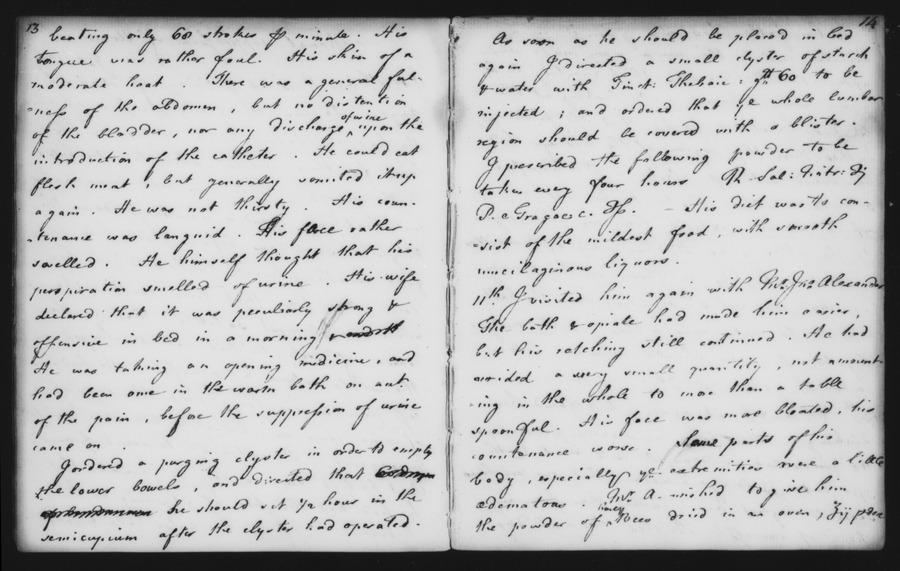 13
beating only 60 strokes ⅌ minute. His
tongue was rather foul. His skin of a
moderate heat. There was a general ful-
-ness of the abdomen, but no distention
of the bladder, nor any discharge of urine upon the
introduction of the catheter. He could eat
flesh meat, but generally vomited it up
again. He was not thirsty. His coun-
-tenance was languid. His face rather
swelled. He himself thought that his
perspiration smelled of urine. His wife
declared that it was peculiarly strong &
offensive in bed in a morning
He was taking an opening medicine, and
had been once in the warm bath on acct.
of the pain, before the suppression of urine
came on
I ordered a purging clyster in order to empty
the lower bowels, and directed that
he should sit ½ hour in the
semicupium after the clyster had operated.
14
As soon as he should be placed in bed
again I directed a small clyster of starch
& water with Tinct: Thebaic: gtt 60 to be
injected; and ordered that ye whole lumbar
region should be covered with a blister.
I prescribed the following powder to be
taken every four hours ℞ Sal: Nitr: ʒj
P. e Tragac. C. ʒſs. - His diet was to con-
-sist of the mildest food, with smooth
mucilaginous liquors.
11th I visited him again with Mr. Jno. Alexander
The bath & opiate had made him easier,
but his retching still continued. He had
avoided a very small quantity, not amount-
-ing in the whole to more than a table
spoonful. His face was more bloated, his
countenance worse. Some parts of his
body, especially ye extremities were a little
œdematous. Mr. A. wished to give him
the powder of honey Bees dried in an oven, ʒij